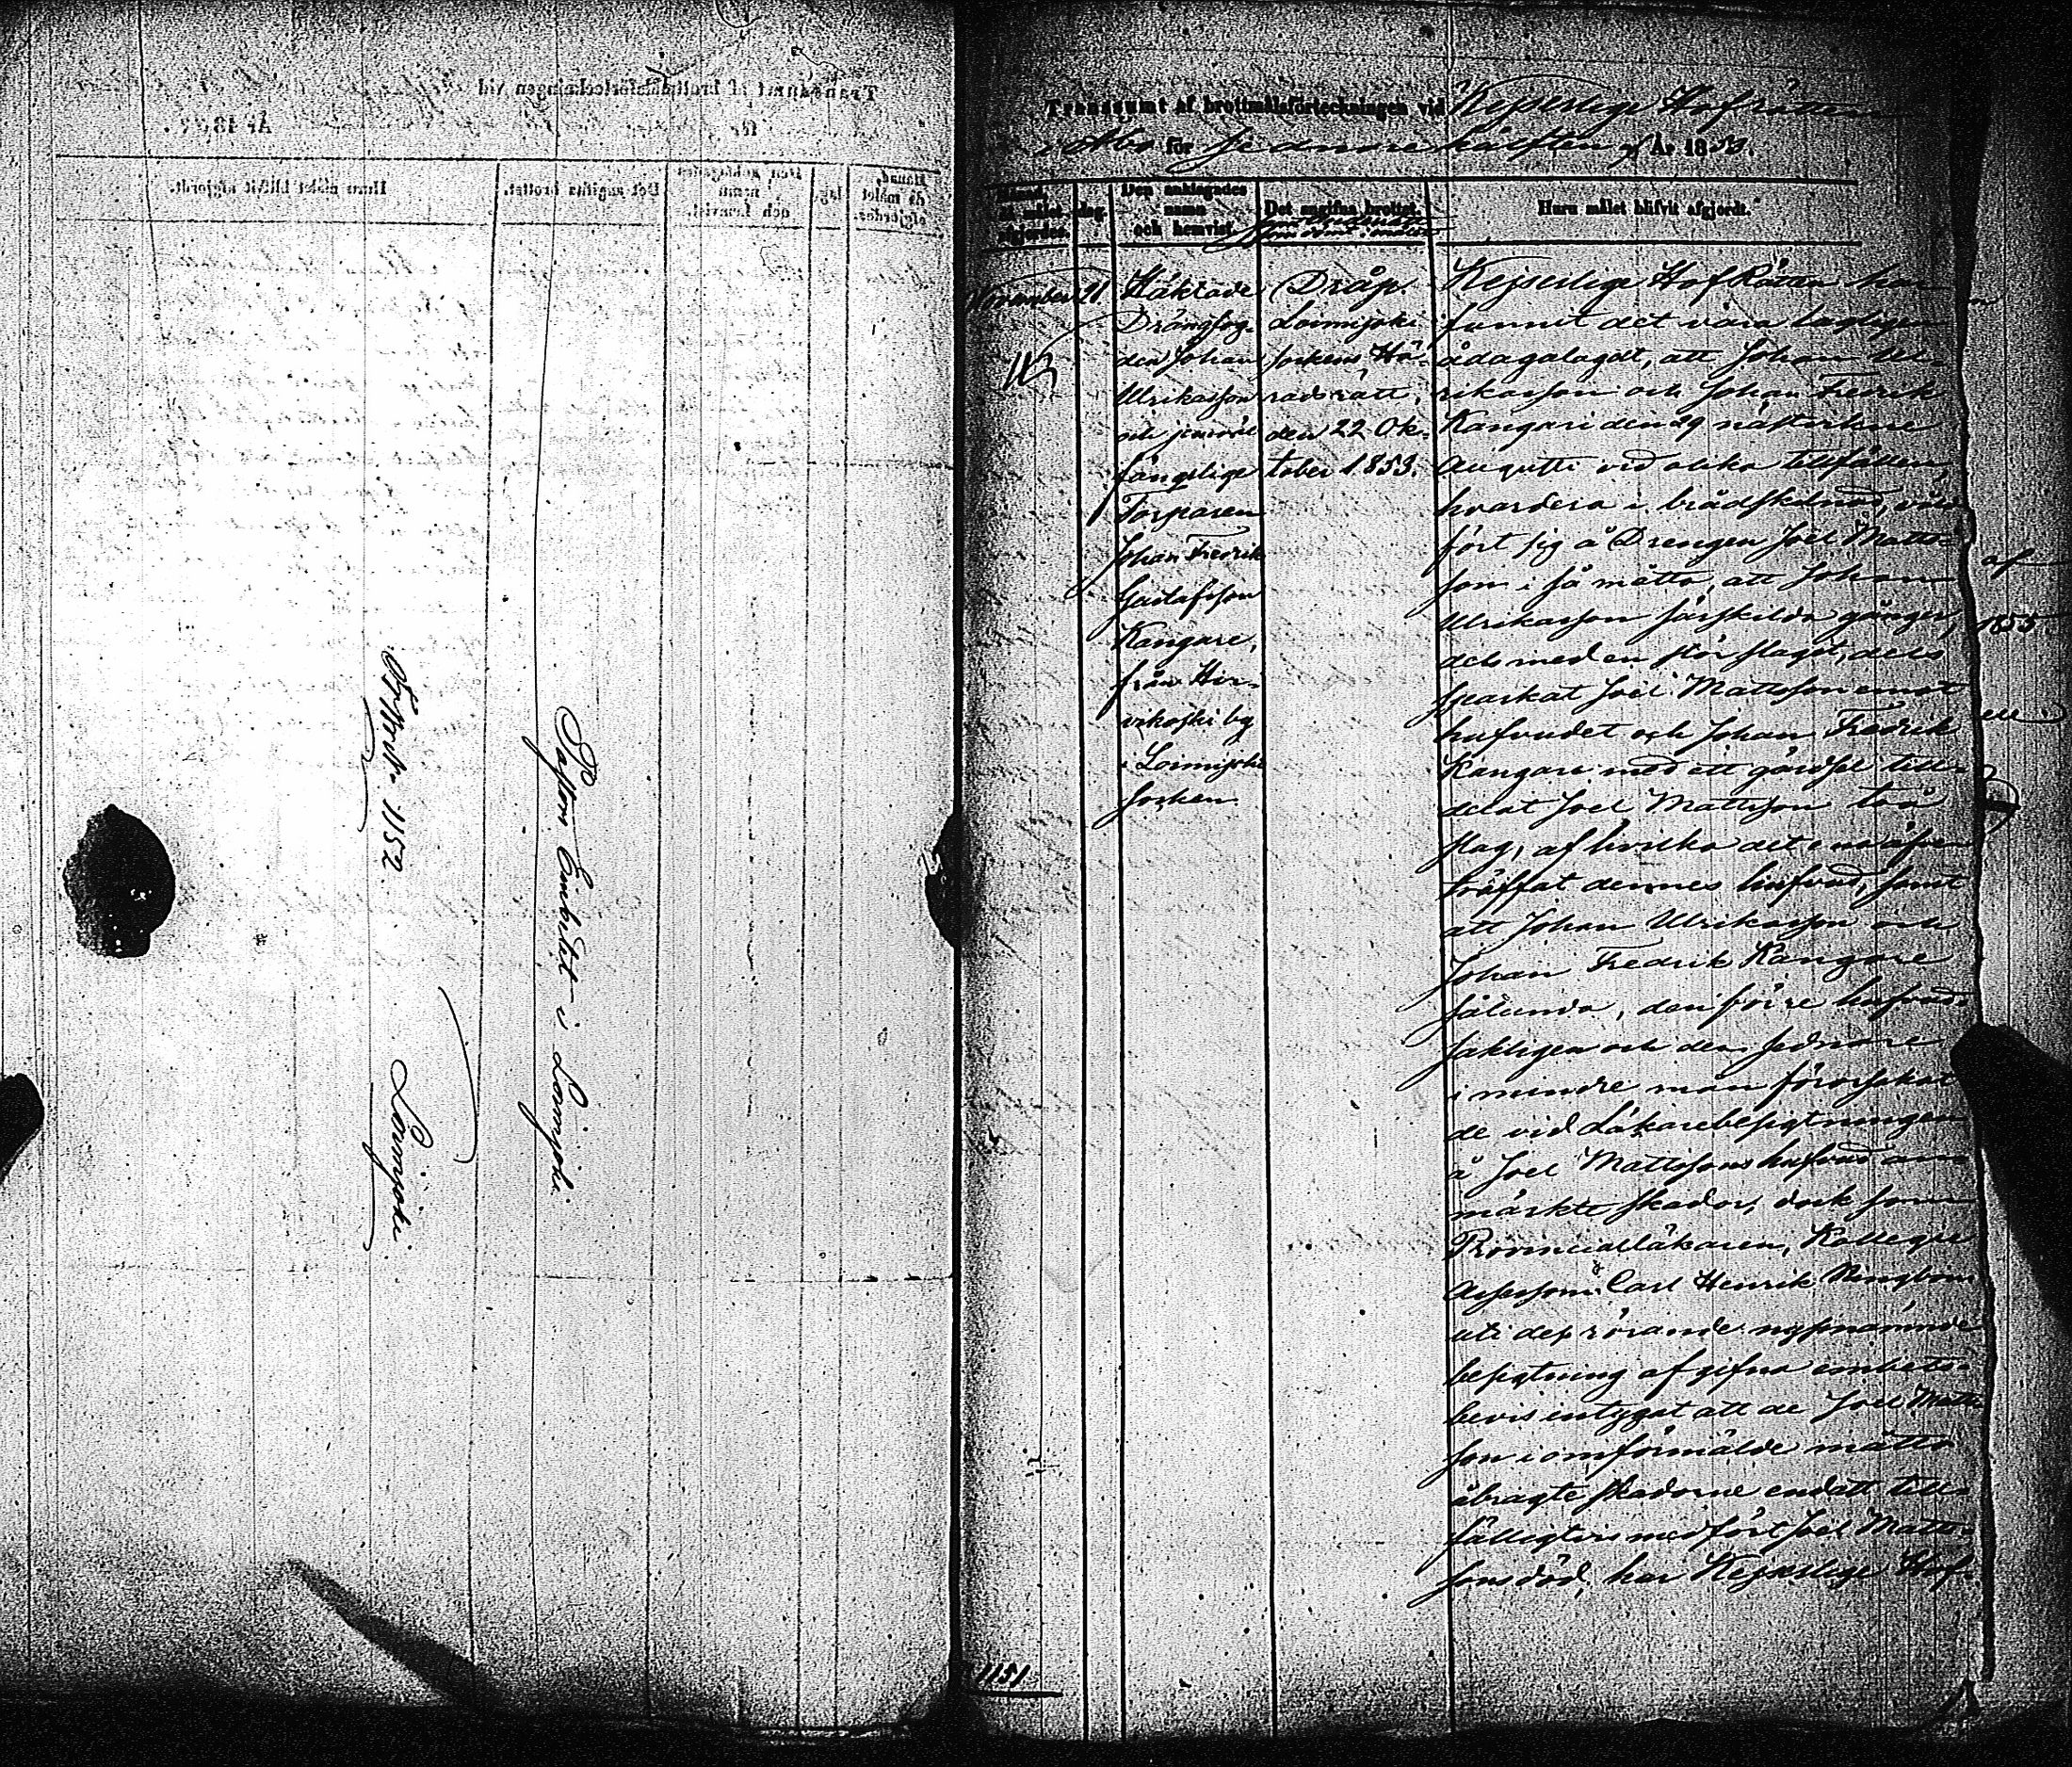 Pastors Embetet i Loimijoki.
N:o 1152.
Loimijoki.
Transsumt af brottmålsförteckningen vid Kejserlige Hofrätten
i Åbo för sednare hälften af År 1853.
Månad, då målet afgjordes.
dag.
Den anklagades namn och hemvist.
Det angifna brottet.
Huru målet blifvit afgjordt.
November 21
Häktade
Drängfog-
den Johan
Ulriksson
och jemväl
fängslige
Torparen
Johan Fredrik
Gustafsson
Kangare,
från Hir-
vikoski by
i Loimijoki
socken.
Dråp.
Loimijoki
sockens Hä-
radsrätt,
den 22 Ok-
tober 1853.
Kejserlige HofRätten har
funnit det vara lagligen
ådagalagdt, att Johan Ul-
riksson och Johan Fredrik
Kangari den 29 nästvikne
Augusti vid olika tillfällen,
hvardera i brådskilnad,
fört sig å Drengen Joel Matts-
son i så måtto, att Johan
Ulriksson särskilda gånger,
dels med en stör slagit, dels
sparkat Joel Mattsson emot
hufvudet och Johan Fredrik
Kangare med ett gärdsel till-
delat Joel Mattsson två
slag, af hvilka det ena äfven
träffat dennes hufvud, samt
att Johan Ulriksson och
Johan Fredrik Kangare
sålunda, den förre hufvud-
sakligen och den sednare
i mindre mån förorsakat
de vid Läkarebesigtningen
å Joel Mattssons hufvud an-
märkte skador, dock som
Provincialläkaren, Kollegii
Assessorn Carl Henrik Ringbom
uti det rörande nyssnämnde
besigtning afgifna embets-
bevis intygat att de Joel Matts-
son i omförmälde måtto
åbragte skadorne endast till-
fälligtvis medfört Joel Matts-
sons död; har Kejserlige Hof-
1151
af
1853